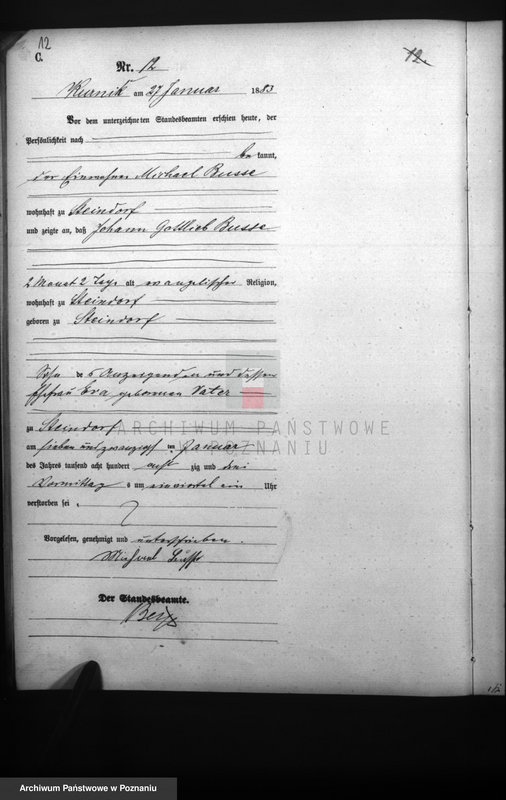 12
C.
12.
Nr. 12
Kurnik am 27 Januar 1883
Vor dem unterzeichneten Standesbeamten erschien heute, der
Persönlichkeit nach
be kannt,
der Einwohner Michael Busse
wohnhaft zu Steindorf
und zeigte an, daß Johann Gottlieb Busse
2 Monat 2 Tage alt evangelischer Religion,
wohnhaft zu Steindorf
geboren zu Steindorf
Sohn des Anzeigenden und dessen
Ehefrau Eva geborenen Vater
zu Steindorf
am sieben und zwanzigst ten Januar
des Jahres tausend acht hundert acht zig und drei
Vormittag s um ein viertel ein Uhr
verstorben sei
Vorgelesen, genehmigt und unterschrieben.
Michael
Der Standesbeamte.
ARCHIWUM PAŃSTWOWE
W POZNANIU
Archiwum Państwowe w Poznaniu